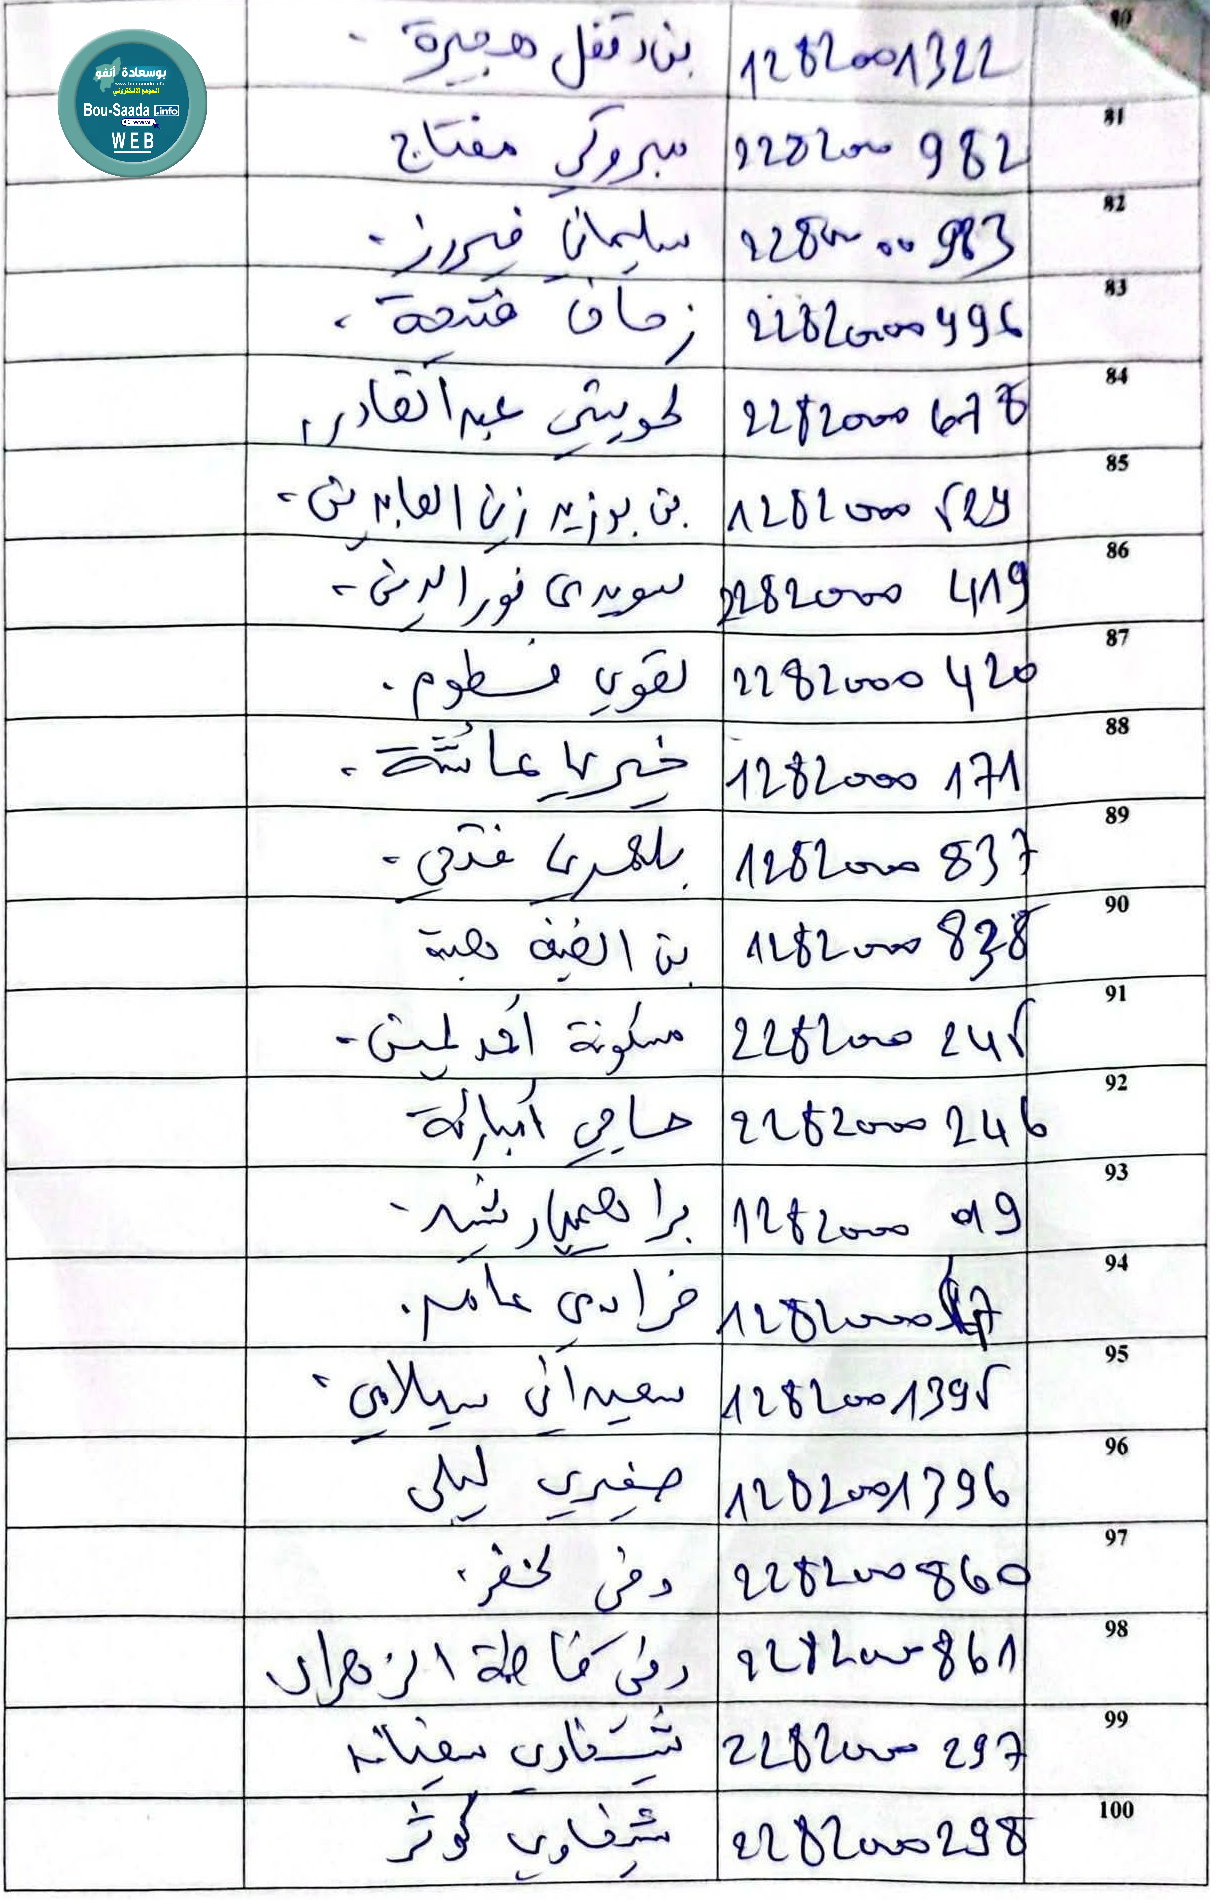 بوسعادة أنفو
الموقع الالكتروني
Bou-Saada .info
WEB
80 1282001322 بن دقفل هجيرة -
81 2282000 982 مبروكي مفتاح
82 2282000 983 سليماني فيروز -
83 2282000 496 زحاف فتيحة
84 2282000 678 لحويشي عبد القادر
85 1282000 529 بن بوزيد زين العابدين -
86 2282000 419 سويدي نور الدين -
87 2282000 420 لقوي فطوم .
88 1282000 171 خيري عائشة
89 1282000 837 بلعمري فتحي -
90 1282000 838 بن الضيف هبة
91 2282000 245 مسكونة أحمد لمين -
92 2282000 246 حاجي امباركة
93 1282000 019 براهيمي رشيد -
94 1282000 عامر .
95 1282001395 سعيداني
96 1282001396 صغيري ليلى
97 2282000 860 دفي لخضر
98 2282000 861 دفي فاطمة الزهراء
99 2282000 297 شيقاوي سفيان
100 2282000 298 شيقاوي كوثر